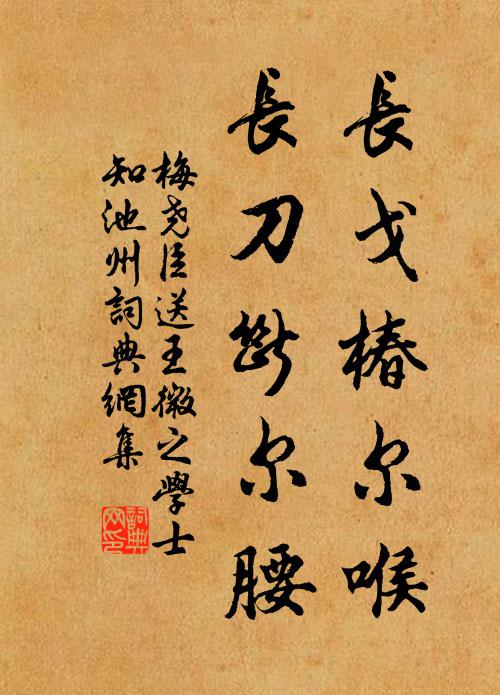 長戈椿尔喉
長刀斷尔腰
梅尧臣送王微之學士
知池州詞典網集
詞典網印